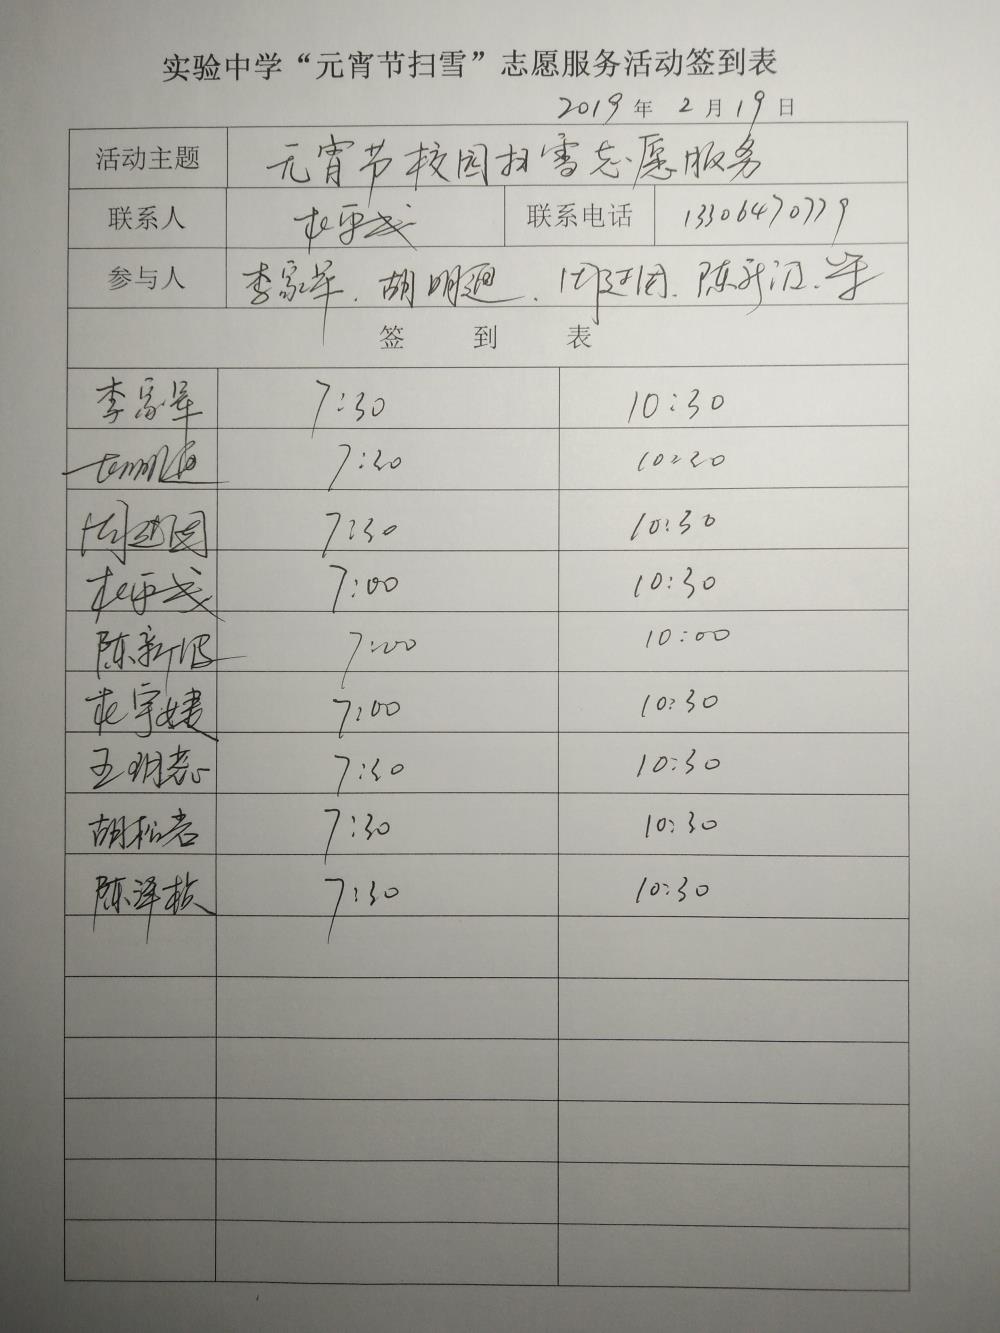 实验中学“元宵节扫雪”志愿服务活动签到表
2019年2月19日
活动主题 元宵节校园扫雪志愿服务
联系人 杜平 联系电话 13306470779
参与人 李家军、胡明、周建国、陈新、等
签到表
李家军 7:30 10:30
7:30 10:30
周建国 7:30 10:30
杜平 7:00 10:30
陈新 7:00 10:00
杜宇婕 7:00 10:30
王明 7:30 10:30
胡松岩 7:30 10:30
陈泽 7:30 10:30